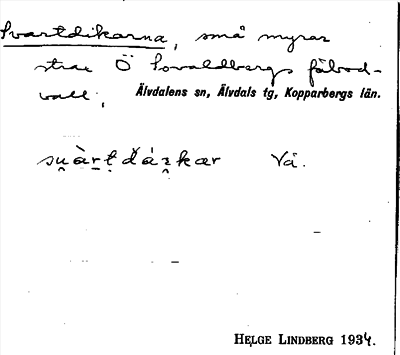 Svartdikarna, små myrar
strax Ö Lovaldbergs fäbod-
vall; Älvdalens sn, Älvdals tg, Kopparbergs län.
Vå.
HELGE LINDBERG 1934.